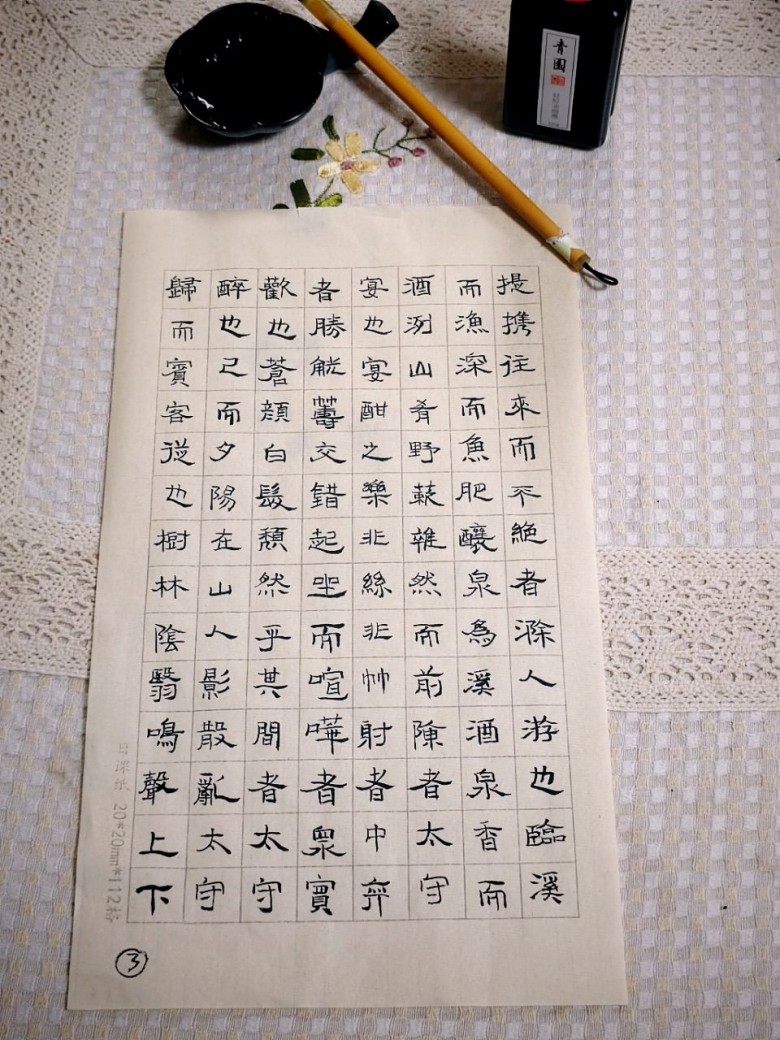 提攜往來而不絶者滁人游也臨溪
而漁溪深而魚肥釀泉為酒泉香而
酒洌山肴野蔌雜然而前陳者太守
宴也宴酣之樂非絲非竹射者中弈
者勝觥籌交錯起坐而諠譁者眾賓
歡也蒼顔白髮頹然乎其間者太守
醉也已而夕陽在山人影散亂太守
歸而賓客從也樹林陰翳鳴聲上下
青圃
日課紙 20*20mm*112格
3